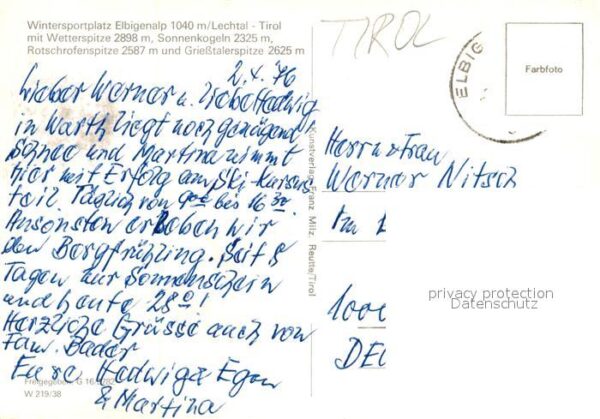 Wintersportplatz Elbigenalp 1040 m/Lechtal - Tirol
mit Wetterspitze 2898 m, Sonnenkogeln 2325 m,
Rotschrofenspitze 2587 m und Grießtalerspitze 2625 m
TIROL
ELBIG
Farbfoto
2.4.76
Lieber Werner u. liebe Hedwig
in Warth liegt noch genügend
Schnee und Martina nimmt
hier mit Erfolg am Ski-Kursus
teil. Täglich von 9oo bis 16 30.
Ansonsten erleben wir
den Bergfrühling. Seit 8
Tagen nur Sonnenschein
und heute 28°!
Herzliche Grüsse auch von
Fam. Bader
Eure Hedwig & Egon
& Martina
Freigegeben: G 16
W 219/38
Kunstverlag Franz Milz, Reutte/Tirol
Herrn u Frau
Werner Nitsch
Im
1000
privacy protection
Datenschutz